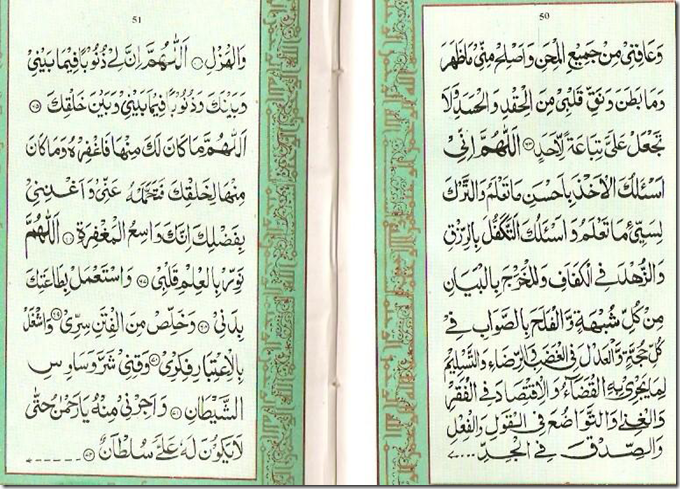 50
وَعَافِنِيْ مِنْ جَمِيْعِ الْمِحَنِ وَاَصْلِحْ مِنِّيْ مَا ظَهَرَ
وَمَا بَطَنَ وَنَقِّ قَلْبِيْ مِنَ الْحِقْدِ وَالْحَسَدِ وَلَا
تَجْعَلْ عَلَيَّ تِبَاعَةً لِّاَحَدٍ اَللّٰهُمَّ اِنِّيْ
اَسْئَلُكَ الْاَخْذَ بِاَحْسَنِ مَا تَعْلَمُ وَالتَّرْكَ
لِسَيِّئِ مَا تَعْلَمُ وَاَسْئَلُكَ التَّكَفُّلَ بِالرِّزْقِ
وَالزُّهْدَ فِي الْكَفَافِ وَالْمَخْرَجَ بِالْبَيَانِ
مِنْ كُلِّ شُبْهَةٍ وَّالْفَلَجَ بِالصَّوَابِ فِيْ
كُلِّ حُجَّةٍ وَّالْعَدْلَ فِي الْغَضَبِ وَالرِّضَاءِ وَالتَّسْلِيْمَ
لِمَا يَجْرِيْ بِهِ الْقَضَآءُ وَالْاِقْتِصَادَ فِي الْفَقْرِ
وَالْغِنٰى وَالتَّوَاضُعَ فِي الْقَوْلِ وَالْفِعْلِ
وَالصِّدْقَ فِي الْجِدِّ
51
وَالْهَزْلِ اَللّٰهُمَّ اِنَّ لِيْ ذُنُوْبًا فِيْمَا بَيْنِيْ
وَبَيْنَكَ وَذُنُوْبًا فِيْمَا بَيْنِيْ وَبَيْنَ خَلْقِكَ
اَللّٰهُمَّ مَا كَانَ لَكَ مِنْهَا فَاغْفِرْهُ وَمَا كَانَ
مِنْهَا لِخَلْقِكَ فَتَحَمَّلْهُ عَنِّيْ وَاَغْنِنِيْ
بِفَضْلِكَ اِنَّكَ وَاسِعُ الْمَغْفِرَةِ اَللّٰهُمَّ
نَوِّرْ بِالْعِلْمِ قَلْبِيْ وَاسْتَعْمِلْ بِطَاعَتِكَ
بَدَنِيْ وَخَلِّصْ مِنَ الْفِتَنِ سِرِّيْ وَاشْغَلْ
بِالْاِعْتِبَارِ فِكْرِيْ وَقِنِيْ شَرَّ وَسَاوِسِ
الشَّيْطَانِ وَاَجِرْنِيْ مِنْهُ يَا رَحْمٰنُ حَتّٰى
لَا يَكُوْنَ لَهٗ عَلَيَّ سُلْطَانٌ